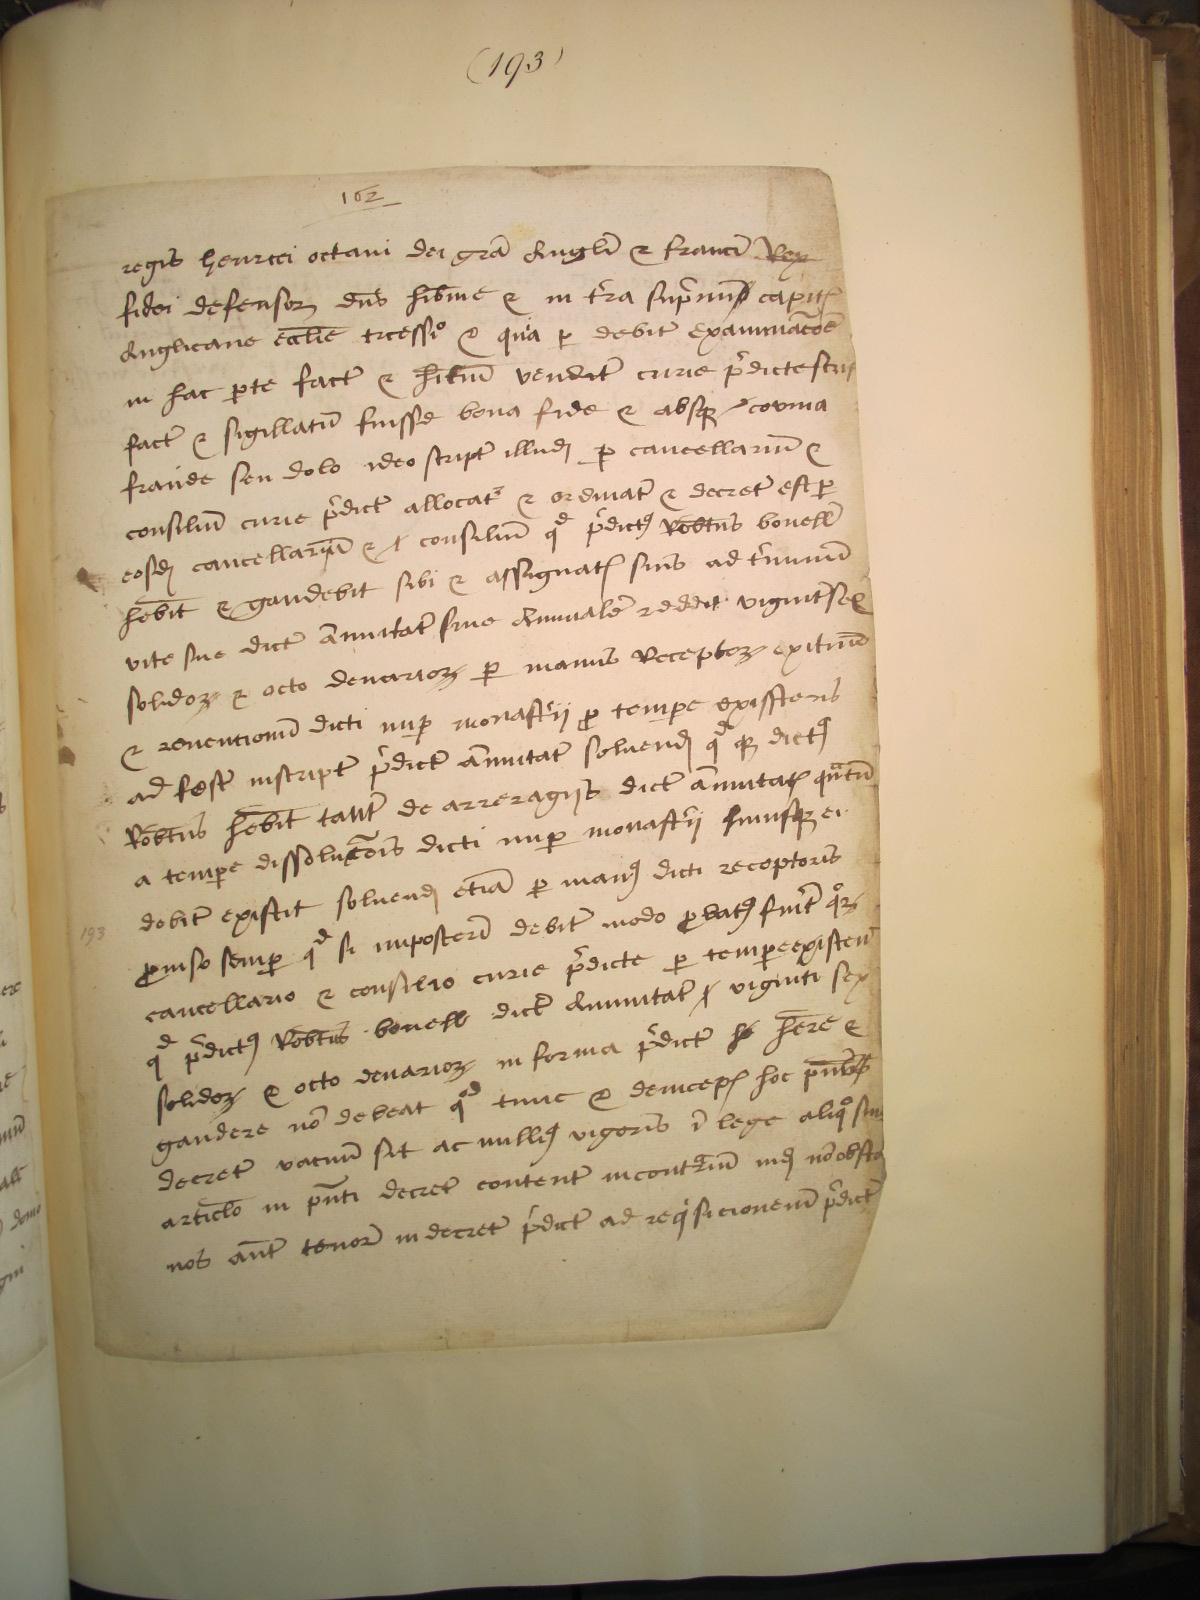 (193)
162
regis henrici octavi dei grã Anglĩ & francĩ Rex
fidei defensoꝝ dñs hibñie & in t'ra sup'mũ capit
Anglicane eccliẽ tricessiº & quia ꝑ debit examinacõẽ
in hac ꝑte fact & hitũ vendit curie p'dicte scrip
fact & sigillatũ fuisse bona fide & absqꝫ covina
fraude seu dolo ideo script illud ꝑ cancellariũ &
consiliũ curie p'dict allocat & ordinat & decret est ꝑ
eosd cancellariũ & consiliũ qd p'dict Robtus bonell
hẽbit & gaudebit sibi & assignat suis ad t'minũ
vite sue dict Annuitat sive Annualẽ reddit vigint sex
solidoꝝ & octo denarioꝝ ꝑ manus Receptoꝝ exituũ
& revencionũ dicti nuꝑ monast'ii ꝓ temꝑe existens
ad fest inscript p'dict Annuitat solvend qd qꝫ dict
Robtus hẽbit tant de arreragiis dict Annuitat quãtũ
a temꝑe dissolucõis dicti nuꝑ monast'ii huiusqꝫ ei
debit existit solvend etiã ꝑ man dicti receptoris
ꝓviso semꝑ qd si imposterũ debit modo ꝓbat fu'it coꝝ
193
cancellario & consilio curie p'dicte ꝑ temꝑe existen
qd p'dict Robtus bonell dict Annuitat viginti sex
solidoꝝ & octo denarioꝝ in forma p'dict hẽre &
gaudere nõ debeat qd tunc & deincep hoc
decret vacuũ sit ac null vigoris ĩ lege aliqº sive
articlo in pñti decret content incontrariũ ind nõ obsta
nos aut tenorẽ in decret p'dict ad reqisicionem p'dict